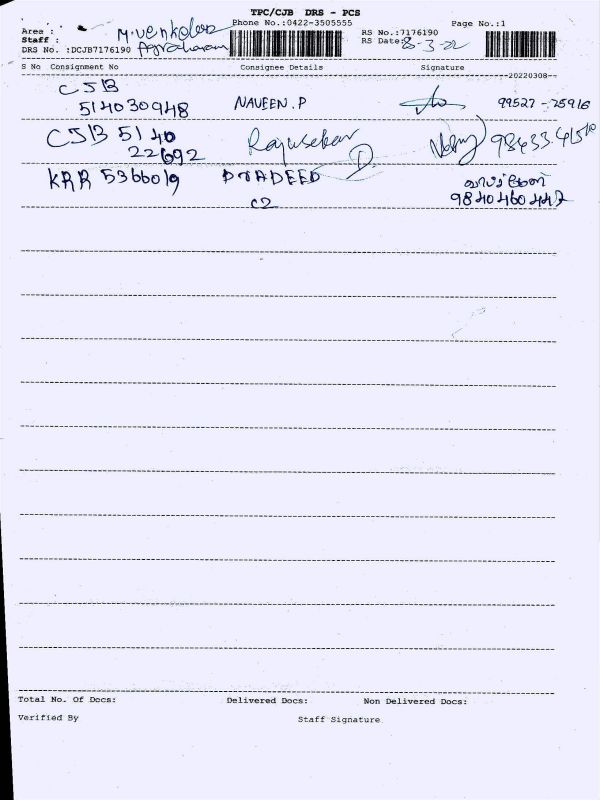 TPC/CJB DRS - PCS
Phone No.:0422-3505555
Page No.:1
Area :
RS No.:7176190
Staff : M.venkatesa
RS Date: 8-3-22
DRS No. :DCJB7176190 Agraharam
S No Consignment No Consignee Details Signature
--20220308--
CJB
514030948 NAVEEN.P 99527-25916
CJB 5140 Rajasekar
22692
KRR 5366019 PRADEED
C2 9840460447
Total No. Of Docs: Delivered Docs: Non Delivered Docs:
Verified By Staff Signature